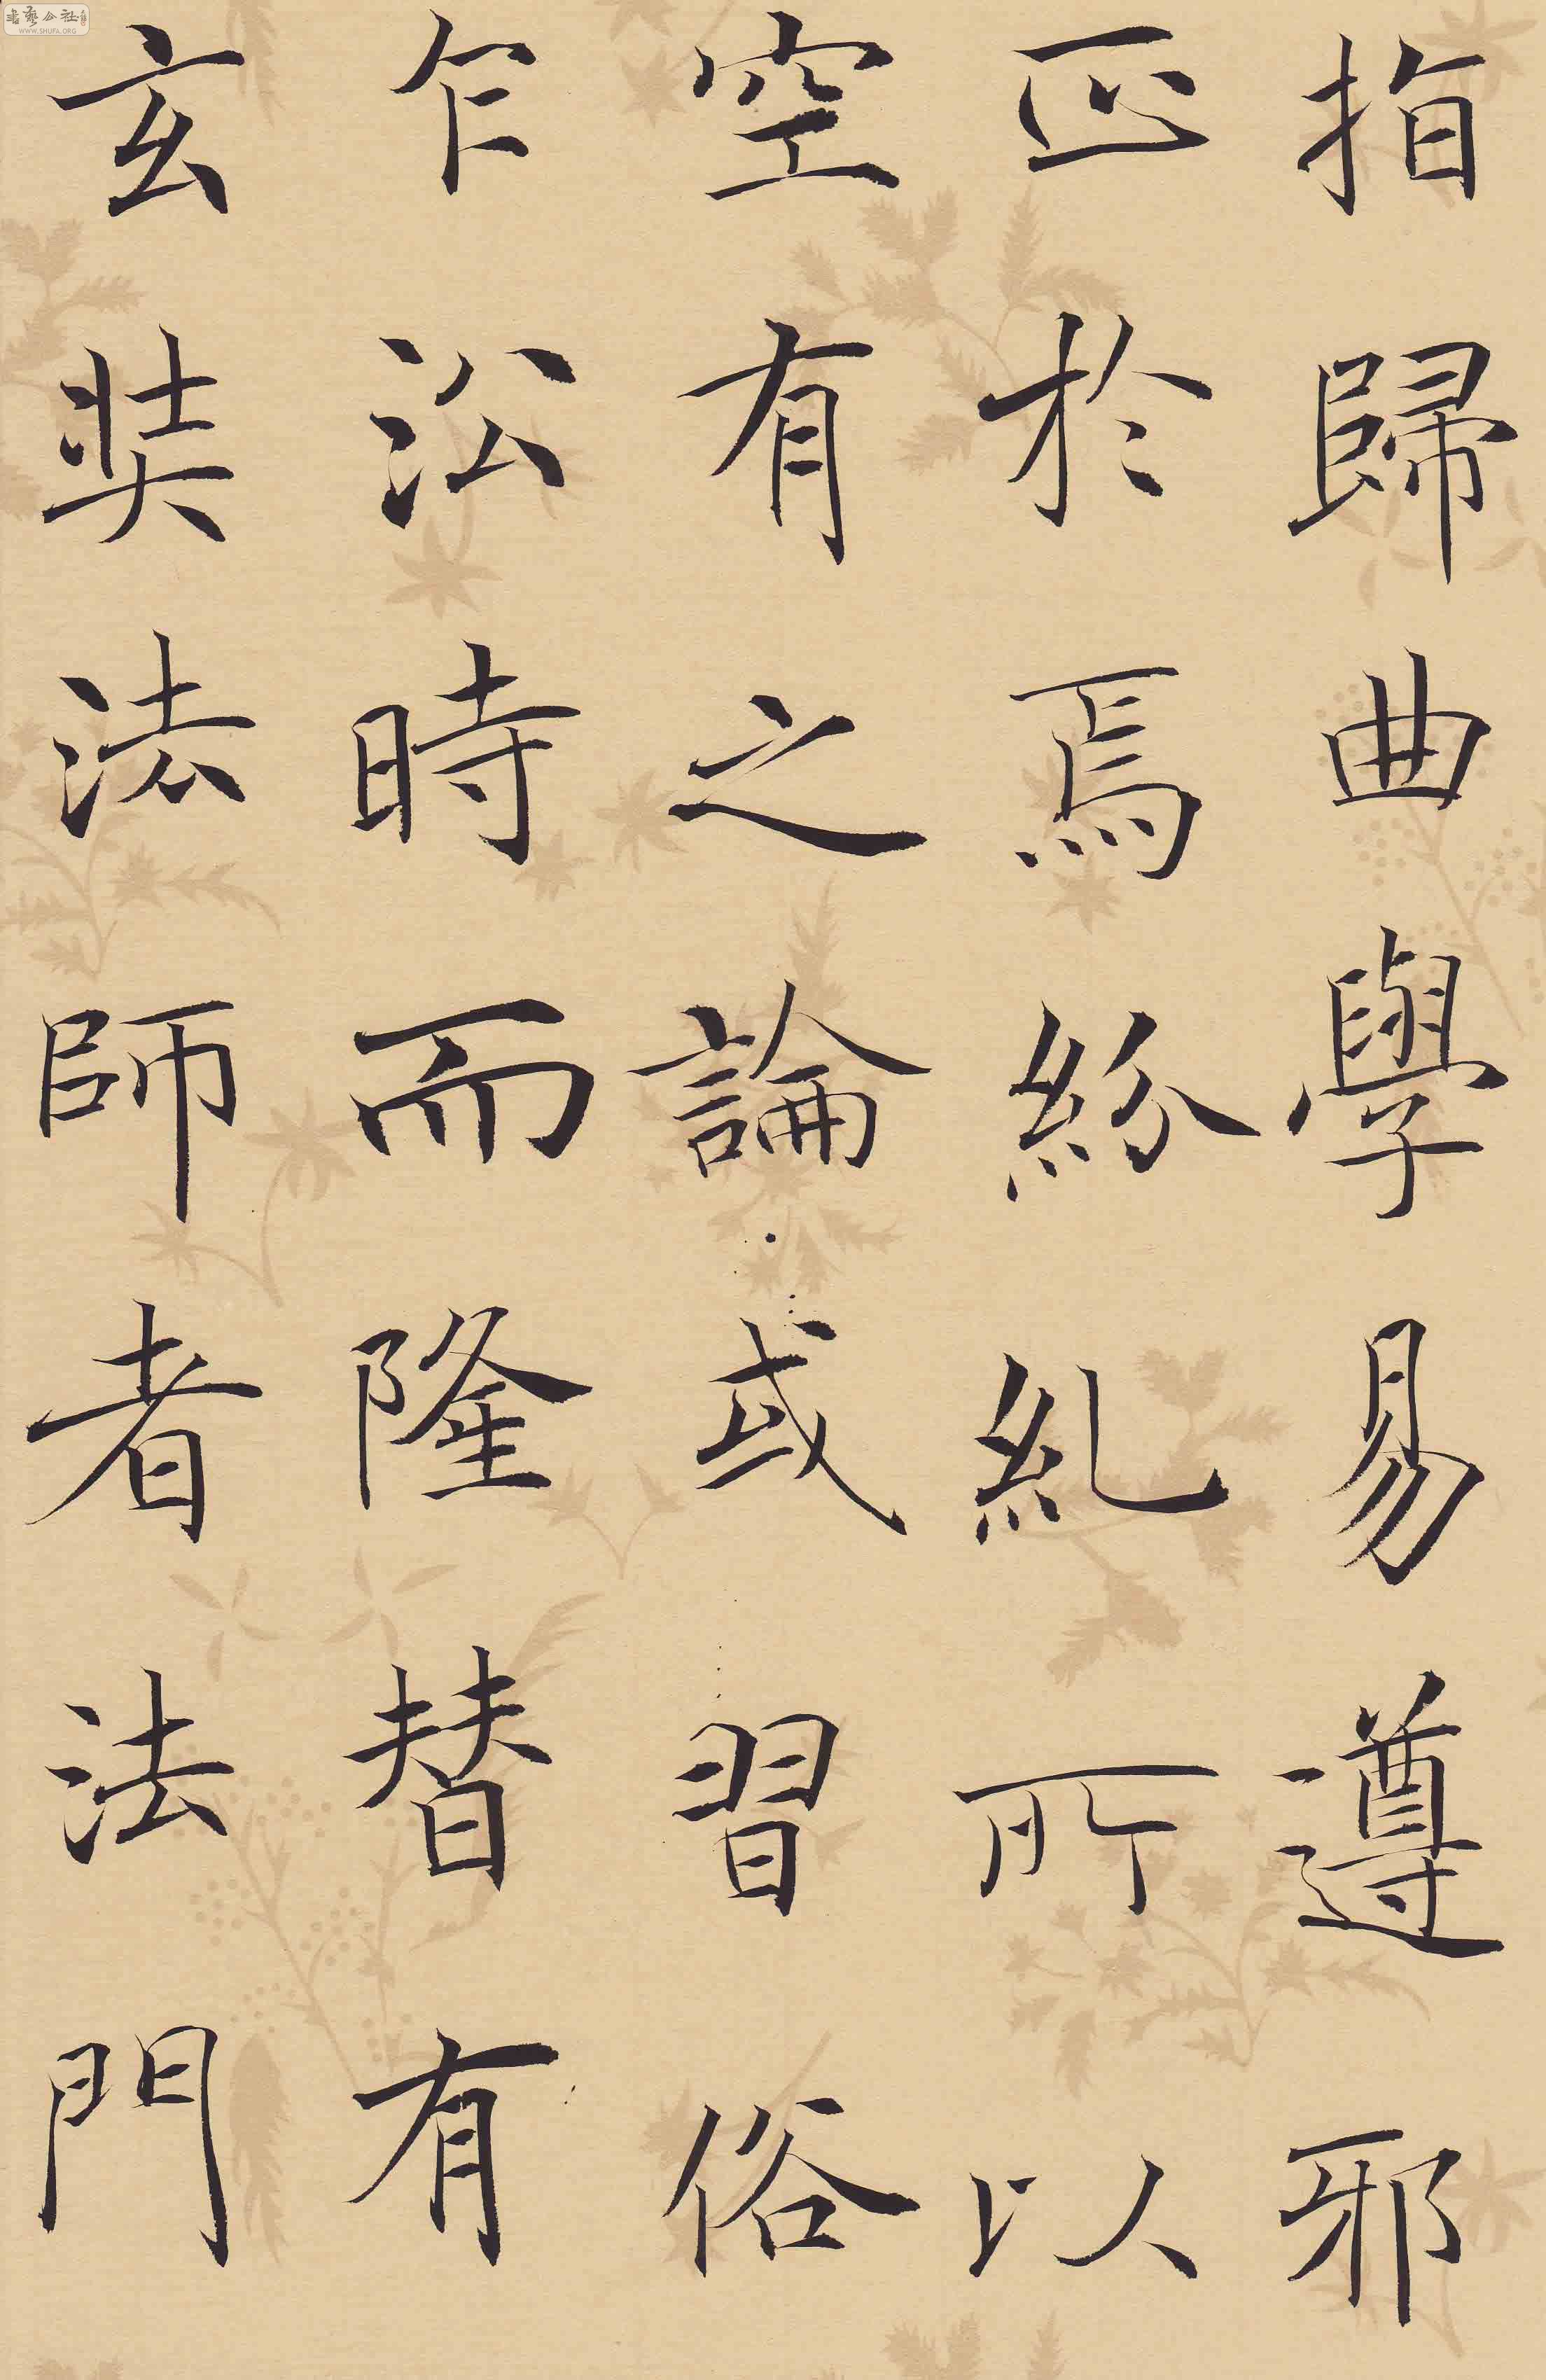 指歸曲學易遵邪
正於焉紛糺所以
空有之論或習俗
乍沿時而隆替有
玄奘法師者法門
WWW.SHUFA.ORG